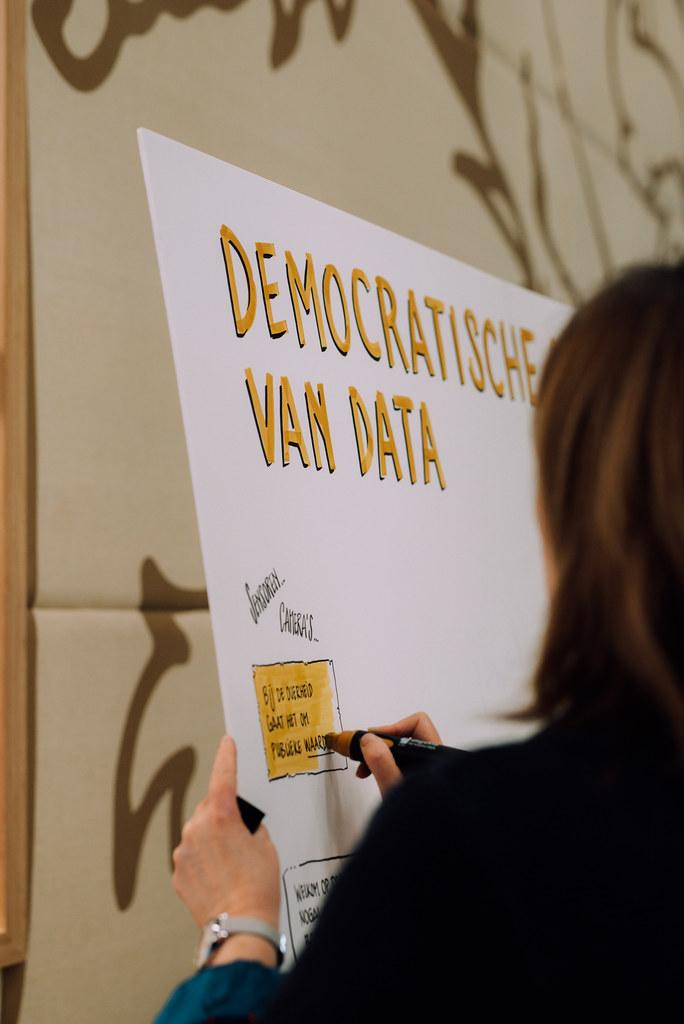 DEMOCRATISCHE
VAN DATA
SENSOREN...
CAMERA'S...
BIJ DE OVERHEID
GAAT HET OM
PUBLIEKE WAARD
WELKOM OP
NOGAL